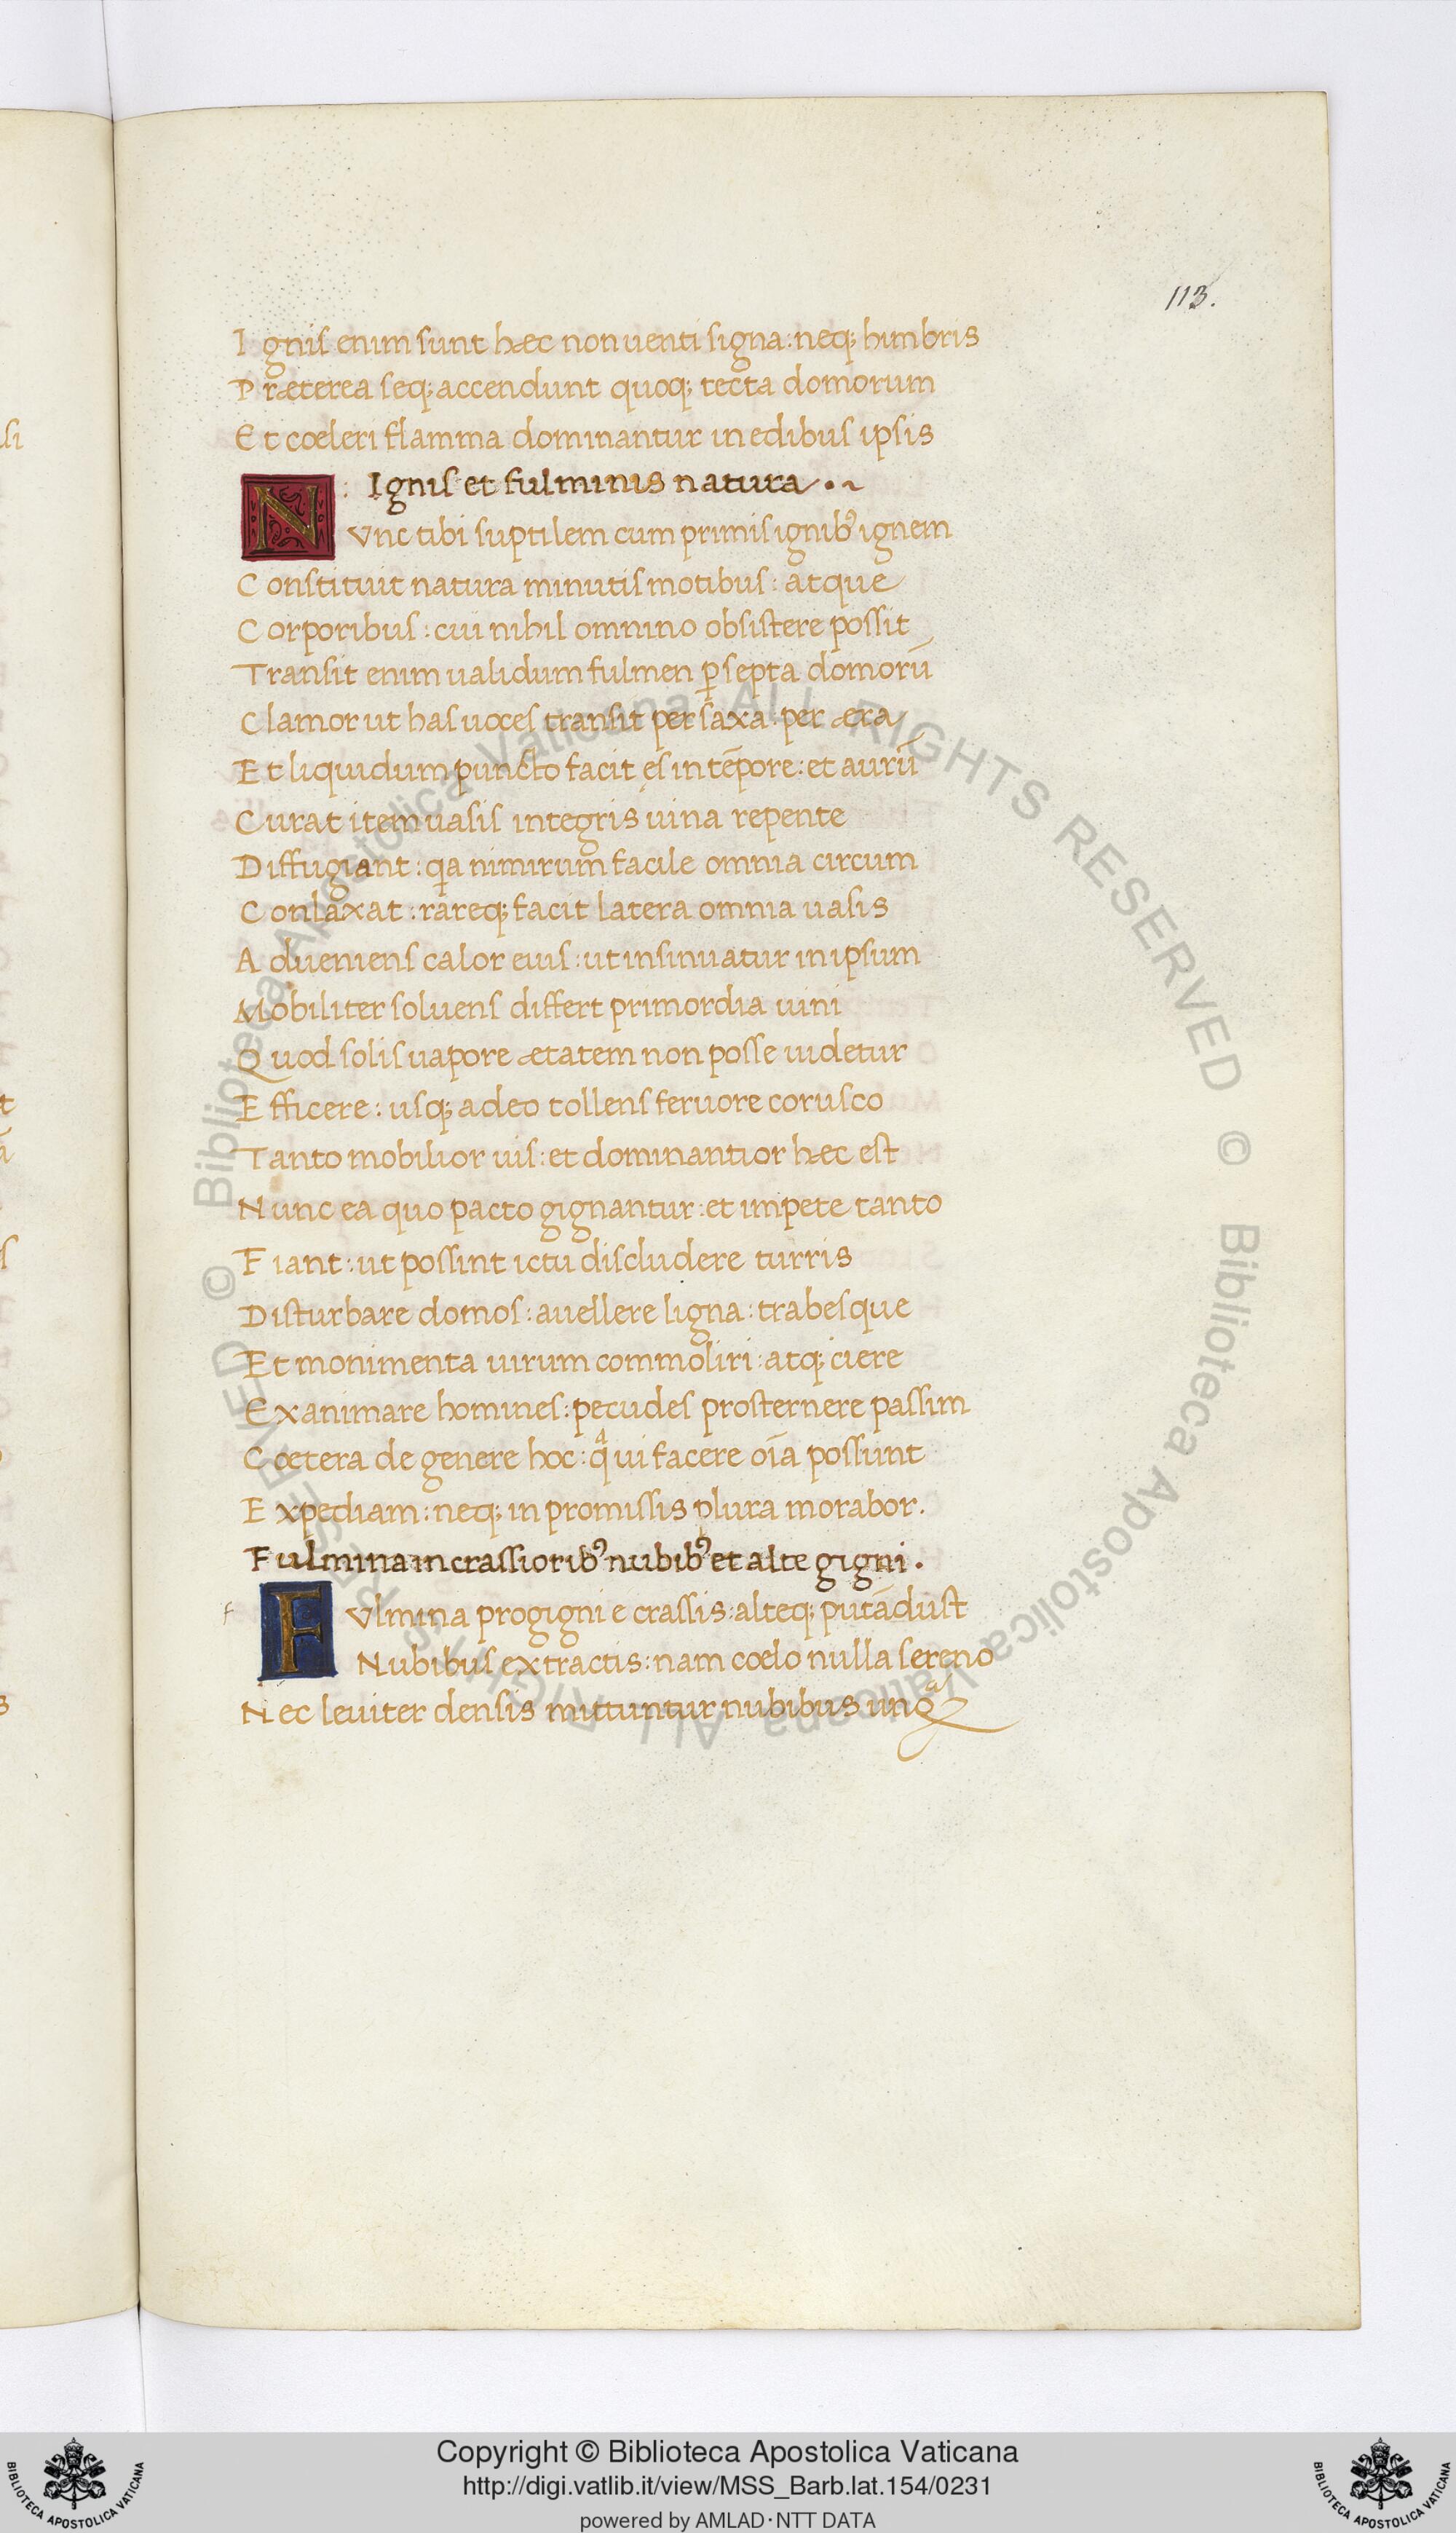 113.
Ignis enim sunt hæc non uenti signa: neq; himbris
Præterea seq; accendunt quoq; tecta domorum
Et cœleri flamma dominantur in edibus ipsis
Ignis et fulminis natura.~
NVnc tibi suptilem cum primis ignibꝰ ignem
Constituit natura minutis motibus: atque
Corporibus: cui nihil omnino obsistere possit
Transit enim ualidum fulmen ꝑ septa domorū
Clamor ut has uoces transit per saxa: per æra
Et liquidum puncto facit ęs in tēpore: et aurū
Curat item uasis integris uina repente
Diffugiant: qa nimirum facile omnia circum
Conlaxat: rareq; facit latera omnia uasis
Adueniens calor eius: ut insinuatur in ipsum
Mobiliter soluens differt primordia uini
Quod solis uapore ætatem non posse uidetur
Efficere: usq; adeo tollens feruore corusco
Tanto mobilior uis: et dominantior hæc est
Nunc ea quo pacto gignantur: et impete tanto
Fiant: ut possint ictu discludere turris
Disturbare domos: auellere ligna: trabesque
Et monimenta uirum commoliri: atq; ciere
Exanimare homines: pecudes prosternere passim
Cœtera de genere hoc: qᵃ ui facere oīa possunt
Expediam: neq; in promissis plura morabor.
Fulmina in crassioribꝰ nubibꝰ et alte gigni.
f
FVlmina progigni e crassis: alteq; putādust
Nubibus extractis: nam coelo nulla sereno
Nec leuiter densis mittuntur nubibus unqᵃ
Copyright © Biblioteca Apostolica Vaticana
http://digi.vatlib.it/view/MSS_Barb.lat.154/0231
powered by AMLAD·NTT DATA
BIBLIOTECA APOSTOLICA VATICANA
BIBLIOTECA APOSTOLICA VATICANA
© Biblioteca Apostolica Vaticana ALL RIGHTS RESERVED
© Biblioteca Apostolica Vaticana ALL RIGHTS RESERVED